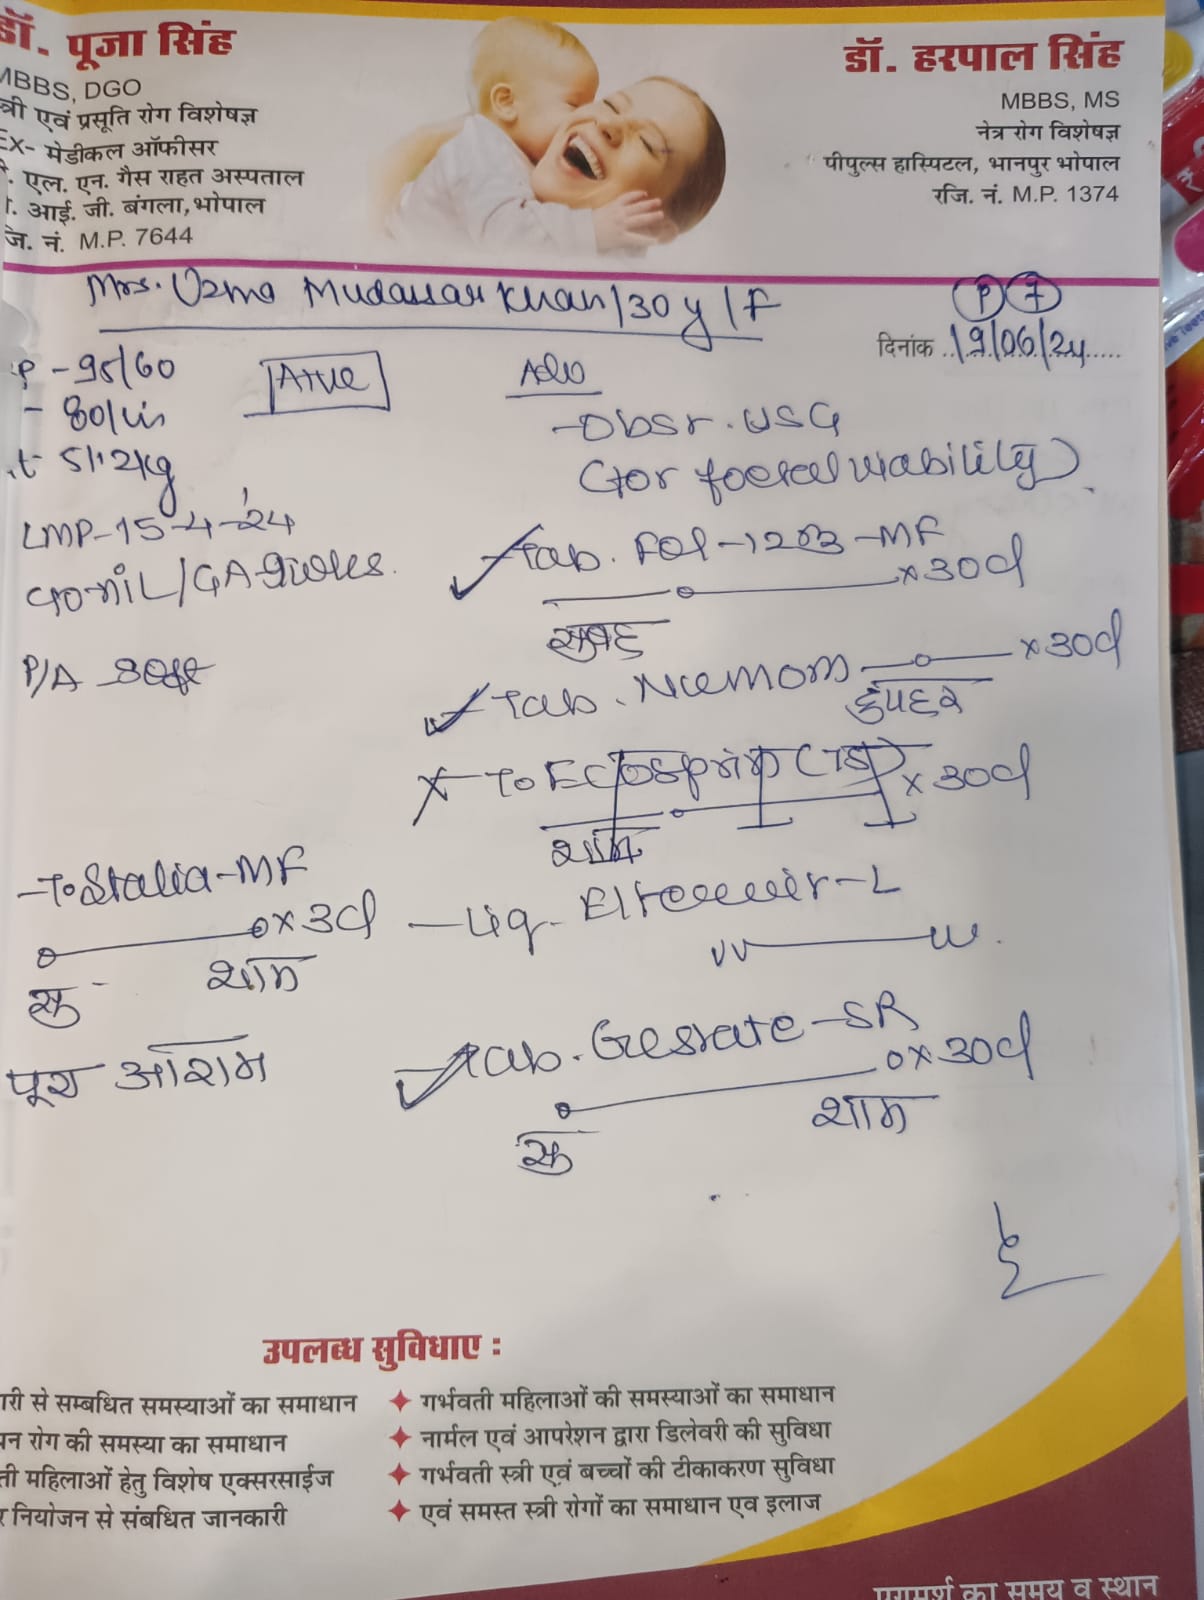 डॉ. पूजा सिंह
MBBS, DGO
स्त्री एवं प्रसूति रोग विशेषज्ञ
EX- मेडीकल ऑफीसर
एल. एन. गैस राहत अस्पताल
आई. जी. बंगला, भोपाल
जि. नं. M.P. 7644
डॉ. हरपाल सिंह
MBBS, MS
नेत्र रोग विशेषज्ञ
पीपुल्स हास्पिटल, भानपुर भोपाल
रजि. नं. M.P. 1374
Mrs. Uzma Mudassar Khan/30 y/F
दिनांक 19/06/24
P - 95/60
- 80/
t 51.2kg
LMP-15-4-24
P/A Soft
Adv
- Obst. USG
(for foetal viability)
Tab. Fol-123-MF
x 30d
सुबह
Tab. Numom x 30d
दुपहर
To Ecosprin (75) x 30d
शाम
- To Stalia-MF
x 3d
सु शाम
पूरा आराम
- Liq. -L
Tab. Gestate-SR
x 30d
सु शाम
उपलब्ध सुविधाए :
री से सम्बधित समस्याओं का समाधान
पन रोग की समस्या का समाधान
ती महिलाओं हेतु विशेष एक्सरसाईज
नियोजन से संबधित जानकारी
गर्भवती महिलाओं की समस्याओं का समाधान
नार्मल एवं आपरेशन द्वारा डिलेवरी की सुविधा
गर्भवती स्त्री एवं बच्चों की टीकाकरण सुविधा
एवं समस्त स्त्री रोगों का समाधान एव इलाज
परामर्श का समय व स्थान